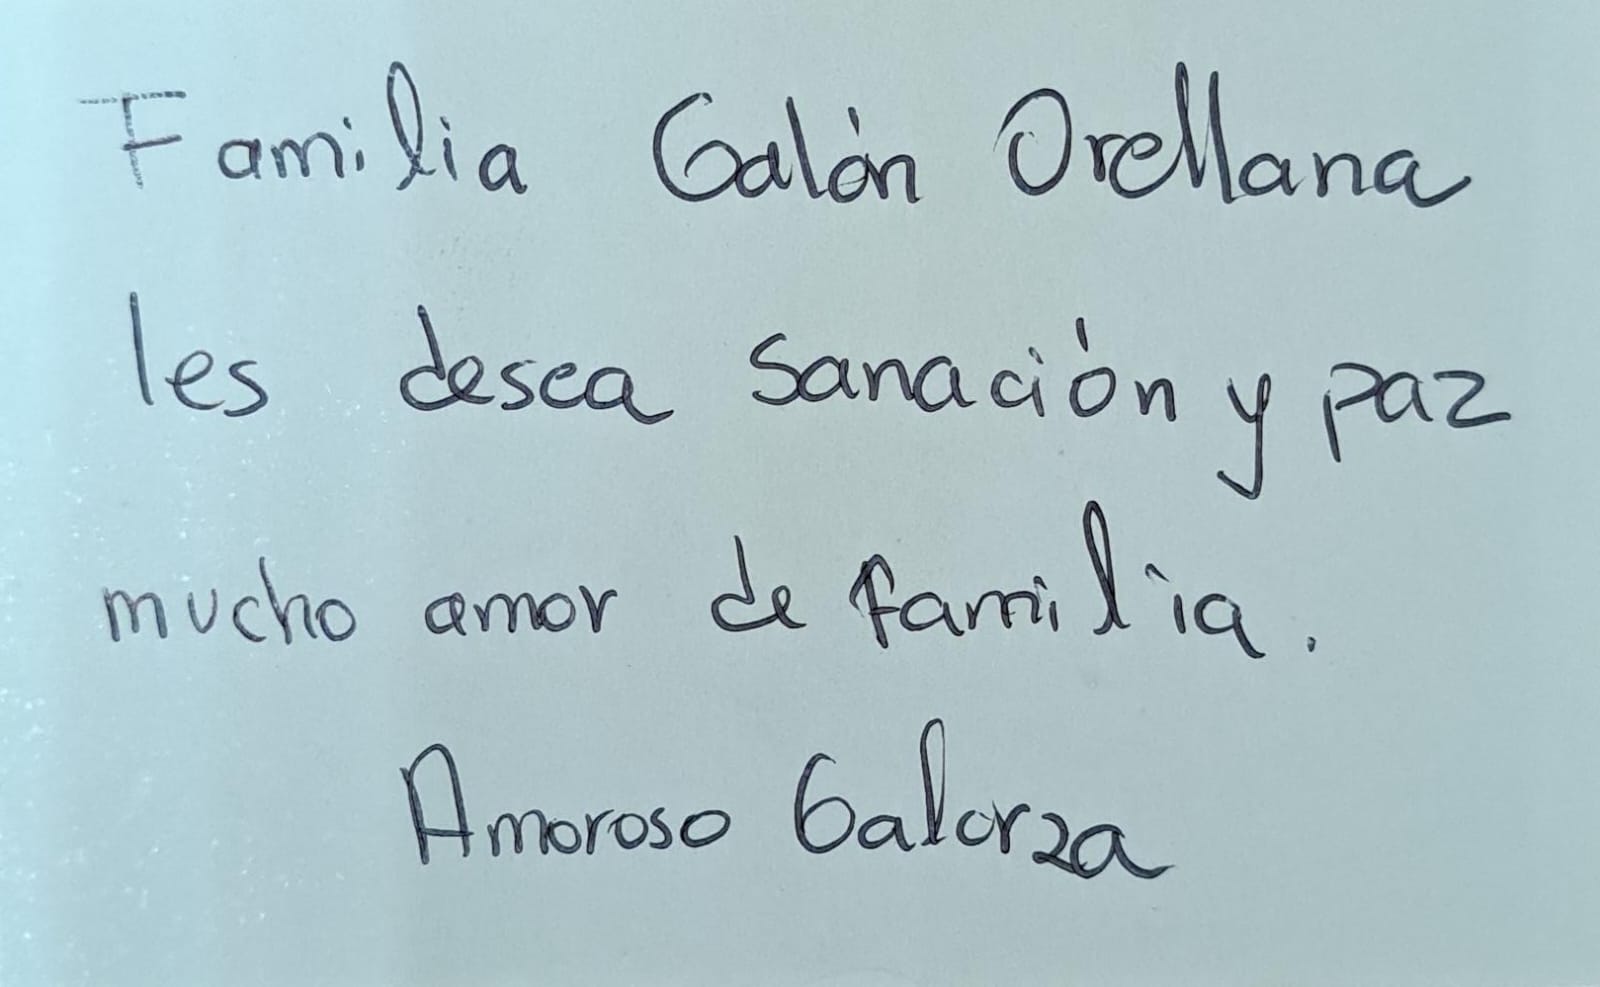 Familia Galón Orellana
les desea Sanación y paz
mucho amor de familia.
Amoroso Galorza